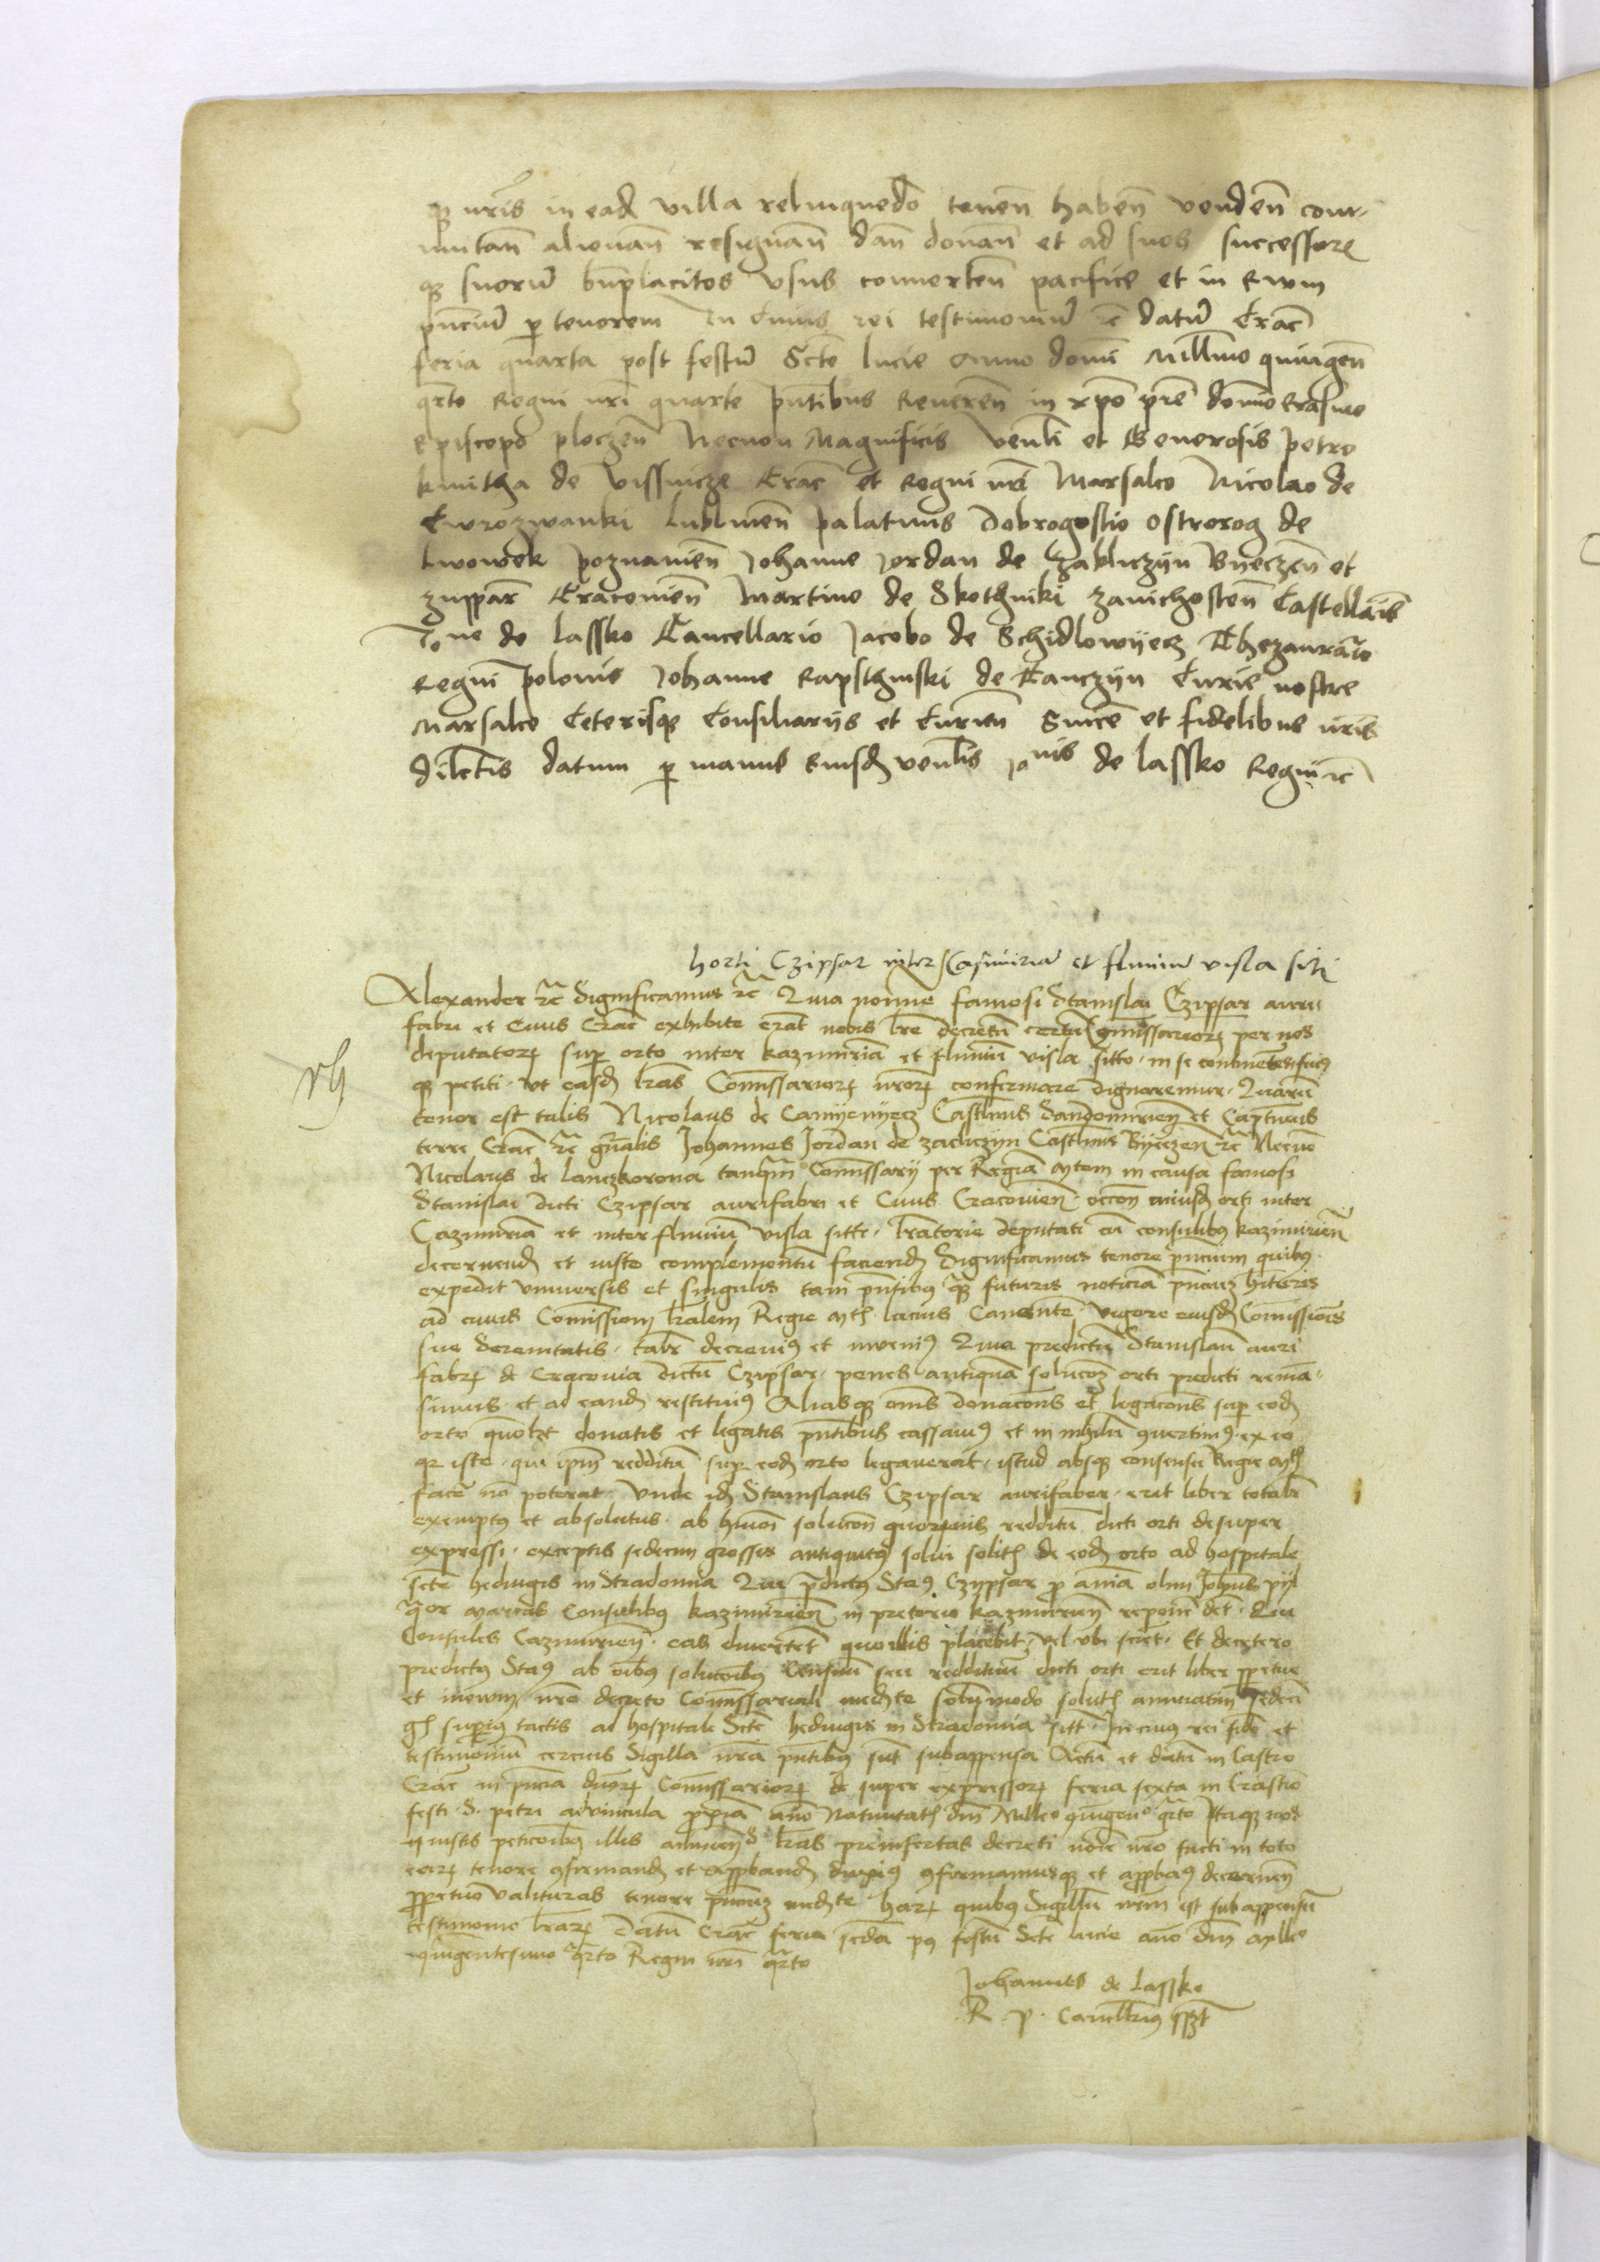 q̃ nr̃is in ead̃ villa relinquend̃o tenen̄ haben̄ venden̄ com-
mutan̄ alienan̄ resignan̄ dan̄ donan̄ et ad suos successorꝫ
q̃ suorum bn̄placitos usus converten̄ pacifice et in Ewm
pn̄cium ꝑ tenorem In Cuius rei testimonium ꝛc̄ datum Crac̄
feria quarta post festum Sct̄e lucie Anno domi Mill̄mo quingen̄
qrto Regni nr̄i quarto pn̄tibus Reveren̄ in xpo pr̄e domo Erasmo
Episcopo ploczen̄ Necnon Magnificis Ven̄li et Generosis petro
kmitha de vissnicze Crac̄ et Regni nr̄i Marsalco Nicolao de
Curozwanki lublinen̄ palatinis Dobrogostio ostrorog de
lwowek poznanien̄ Johanne Jordan de zakliczyn Byeczen̄ et
zuppar̄ Cracovien̄ Martino de Skothniki zavichosten̄ Castellan̄is
Jone de lassko Cancellario Jacobo de Schidlowyecz Thezaurario
Regni polonie Johanne Rapsthinski de Tanczyn Curie nostre
Marsalco Ceterisq̃ Consiliariis et Curien̄ Sincē et fidelibus nr̄is
dilectis datum ꝑ manus Eiusd̃ ven̄lis Jonis de lassko Regni ꝛc̄
horti Czipsar inter Casimiriam et fluvium visla siti
Alexander ꝛc̄ Significamus ꝛc̄ Quia nomine famosi Stanislai Czipsar auri
fabri et Civis Crac̄ exhibite erāt nobis lr̄e decretum certum Com̄issariorꝫ per nos
deputatorꝫ sup orto inter kazimiriā et fluvium visla sitto in se continentes
q̃ petiti ut easd̃ lr̄as Com̄issariorꝫ nr̄orꝫ confirmare dignaremur Quarum
tenor est talis Nicolaus de Camyenyecz Castl̄nus Sandomirien̄ et Captneus
terre Crac̄ ꝛc̄ gn̄alis Johannes Jordan de zacliczyn Castl̄nus Byeczen̄ ꝛc̄ Necnō
Nicolaus de lanczkorona tanq̄m Com̄issarii per Regiā Mtem in causa famosi
Stanislai dicti Czipsar aurifabri et Civis Cracovien̄ occōn cuiusd̃ orti inter
Cazimiriā et inter fluvium visla sitti lr̄atorie deputati cū consulibus kazimirien̄
decernend̃ et iusto complementum faciend̃ Significamus tenore pn̄cium quibus
expedit universis et singulis tam pn̄tibus q̄ futuris noticiā pn̄cium habituris
ad cuius Com̄issionem lr̄alem Regie Mth lacius Canentē vigore eiusd̃ Com̄issionis
sue Serenitatis talr̄ decrevimus et invenimus Quia predictum Stanislaum auri
fabrꝫ de Cracovia dictum Czipsar penes antiquā solucōꝫ orti predicti reman-
simus et ad eand̃ restituimus Aliasq̃ om̄is donacōnes et legacōnes sup eod̃
orto quolꝫt donatis et legatis pn̄tibus cassamus et in nihilum convertimus ex eo
qꝛ iste qui ip̄m redditum sup eod̃ orto legaverat istud absq̃ consensu Regie Mth
facē nō poterat Unde id̃ Stanislaus Czipsar aurifaber erit liber totalr̄
exemptus et absolutus ab hm̄oi solucōn quorumvis redditum dicti orti desuper
expressi exceptis sedecim grossis antiquitus solvi solith de eod̃ orto ad hospitale
sct̄e hedwigis in Stradomia Qui p̄dictus Stas Czypsar ꝑ aniā olim Johannis pyl
q̄tuor marcas Consulibus kazimirien̄ in pretorio kazimirien̄ reponē det Que
Consules Cazimirien̄ eas divertēt quo illis placebit vel ubi sciēt Et decetero
predictus Stas ab oībus solucōibus Censuum seu reddituum dicti orti erit liber ꝑpetue
et inewm nr̄o decreto Com̄issariali mediāte solūmodo soluth annuatim sedecī
gh superius tactis ad hospitale Sct̄e hedwigis in Stradomia sitt In cuius rei fidē et
testimonium cercius Sigilla nr̄a pn̄tibus sūt subappensa Actum et datum in Castro
Crac̄ in pn̄cia dn̄orꝫ Com̄issariorꝫ de super expressorꝫ feria sexta in Crastino
festi S. petri advincula ꝓxia anō Nativitath dn̄i Mill̄o quingeno qrto Itaq̃ nos
iustis peticōibus illis annuen̄ lr̄as preinsertas decreti noīe nr̄o facti in toto
earꝫ tenore confirmand̃ et approband̃ duximus confirmamusq̃ et approbamus decernen̄
perpetuo valituras tenore pn̄cium mediāte harꝫ quibus Sigillum nr̄m est subappensum
testimonio lr̄arꝫ Datum Crac̄ feria secd̃a pꝰ festum Sct̄e lucie anō dn̄i Mill̄o
quingentesimo qrto Regni nr̄i qrto
Johannes de lassko
R. p. Cancell̄rius sp̄t